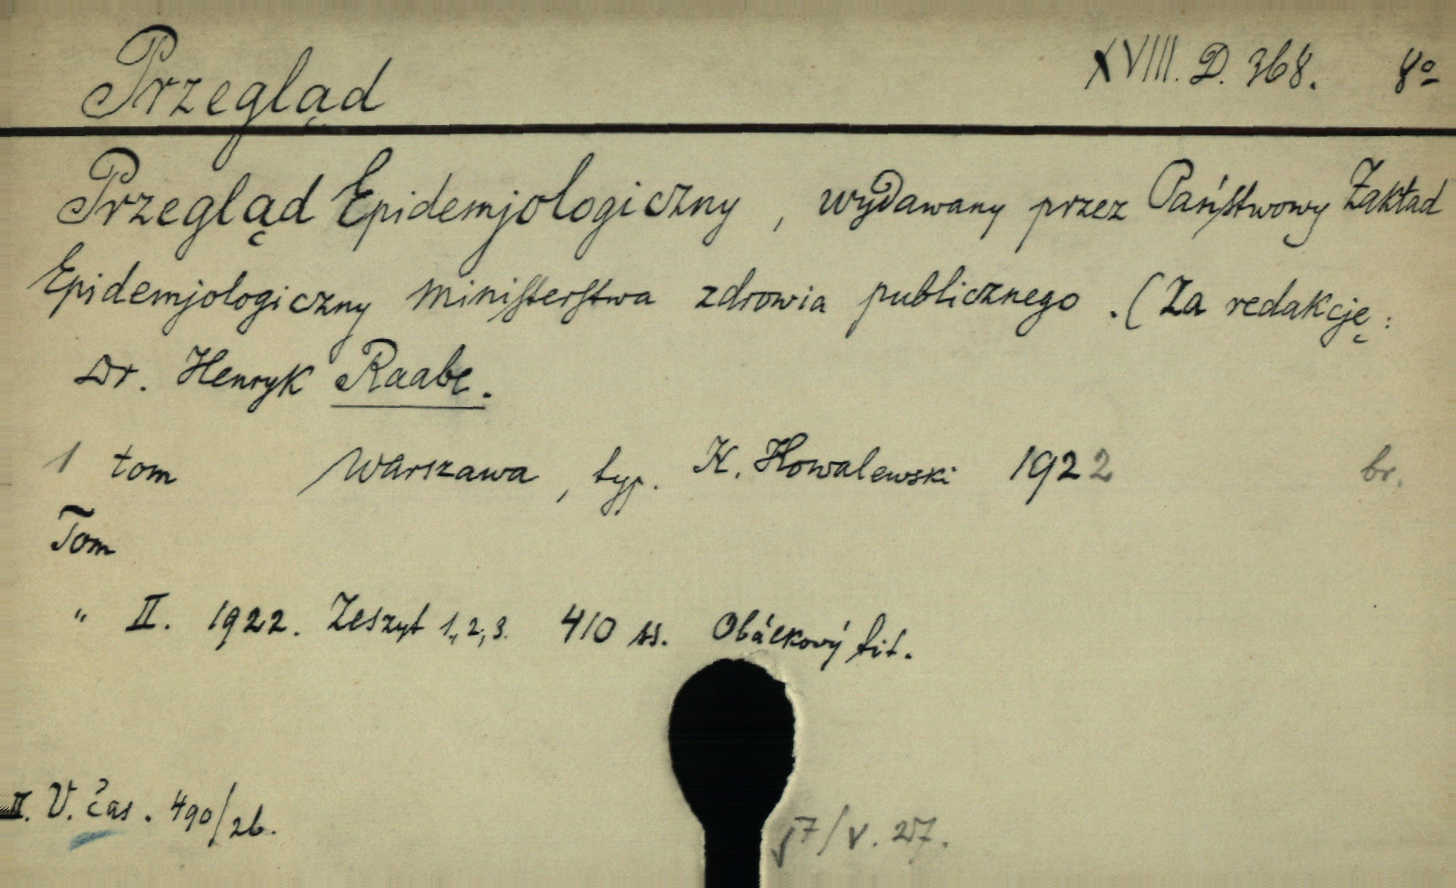 Przegląd XVIII. D. 368. 8º
Przegląd Epidemjologiczny, wydawany przez Państwowy Zakład
Epidemjologiczny ministerstwa zdrowia publicznego. (Za redakcję:
Dr. Henryk Raabe.
1 tom Warszawa, typ. K. Kowalewski 1922 br.
Tom
" II. 1922. Zeszyt 1, 2, 3. 410 ss. Obálkový tit.
II. V. čas. 490/26.
17/V. 27.